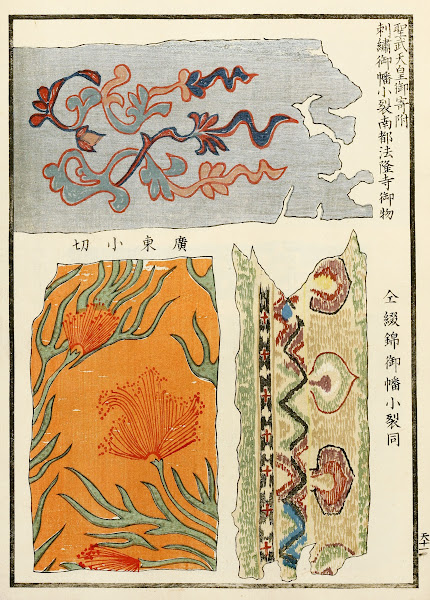 聖武天皇御寄附
刺繡御幡小裂南都法隆寺御物
廣東小切
仝綴錦御幡小裂同
天十一